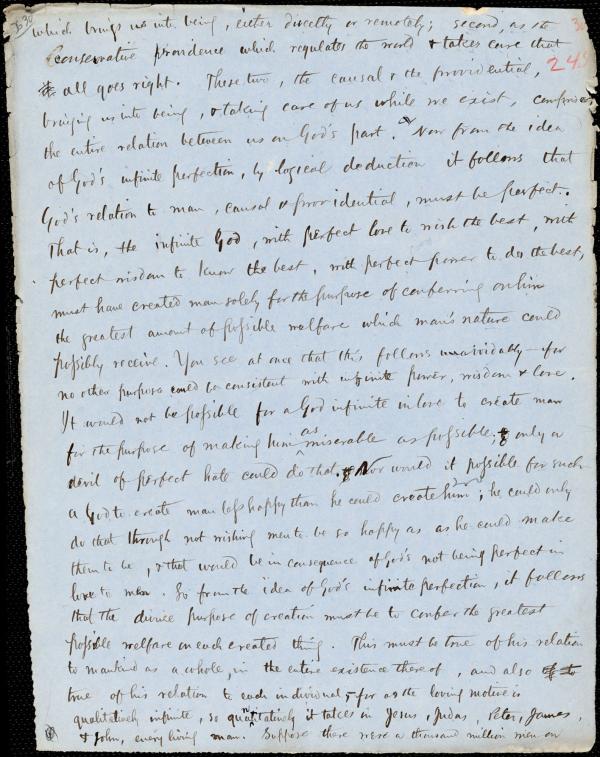 which brings us into being, either directly or remotely; second, as the
conservative providence which regulates the world & takes care that
all goes right. These two, the causal & the providential,
245
bringing us into being, & taking care of us while we exist, comprises
the entire relation between us on God's part. Now from the idea
of God's infinite perfection, by logical deduction it follows that
God's relation to man, causal & providential, must be perfect.
That is, the infinite God, with perfect love to wish the best, with
perfect wisdom to know the best, with perfect power to do the best,
must have created man solely for the purpose of conferring on him
the greatest amount of possible welfare which man's nature could
possibly receive. You see at once that this follows unavoidably – for
no other purpose could be consistent with infinite power, wisdom & love.
It would not be possible for a God infinite in love to create man
for the purpose of making him as miserable as possible; only a
devil of perfect hate could do that. Nor would it possible for such
a God to create man less happy than he could create him; he could only
do that through not wishing men to be so happy as as he could make
them to be, & that would be in consequence of God's not being perfect in
love to men. So from the idea of God's infinite perfection, it follows
that the divine purpose of creation must be to confer the greatest
possible welfare on each created thing. This must be true of his relation
to mankind as a whole, in the entire existence thereof, and also
true of his relation to each individual, for as the loving motive is
qualitatively infinite, so quantitatively it takes in Jesus, Judas, Peter, James,
& John, every living man. Suppose there were a thousand million men on